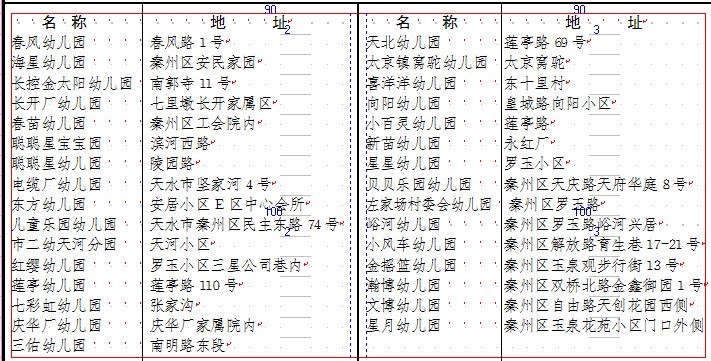 90 90
名 称 地 址 名 称 地 址
2 3
春风幼儿园 春风路 1 号 天北幼儿园 莲亭路 69 号
海星幼儿园 秦州区安民家园 太京镇窝驼幼儿园 太京窝驼
长控金太阳幼儿园 南郭寺 11 号 喜洋洋幼儿园 东十里村
长开厂幼儿园 七里墩长开家属区 向阳幼儿园 皇城路向阳小区
春苗幼儿园 秦州区工会院内 小百灵幼儿园 莲亭路
聪聪星宝宝园 滨河西路 新苗幼儿园 永红厂
聪聪星幼儿园 陵园路 星星幼儿园 罗玉小区
电缆厂幼儿园 天水市坚家河 4 号 贝贝乐园幼儿园 秦州区天庆路天府华庭 8 号
东方幼儿园 安居小区 E 区中心会所 左家场村委会幼儿园 秦州区罗玉路
100 100
儿童乐园幼儿园 天水市秦州区民主东路 74 号 峪河幼儿园 秦州区罗玉路峪河兴居
2 3
市二幼天河分园 天河小区 小风车幼儿园 秦州区解放路育生巷 17-21 号
红缨幼儿园 罗玉小区三星公司巷内 金摇篮幼儿园 秦州区玉泉观步行街 13 号
莲亭幼儿园 莲亭路 110 号 瀚博幼儿园 秦州区双桥北路金鑫御园 1 号
七彩虹幼儿园 张家沟 文博幼儿园 秦州区自由路天创花园西侧
庆华厂幼儿园 庆华厂家属院内 星月幼儿园 秦州区玉泉花苑小区门口外侧
三佑幼儿园 南明路东段